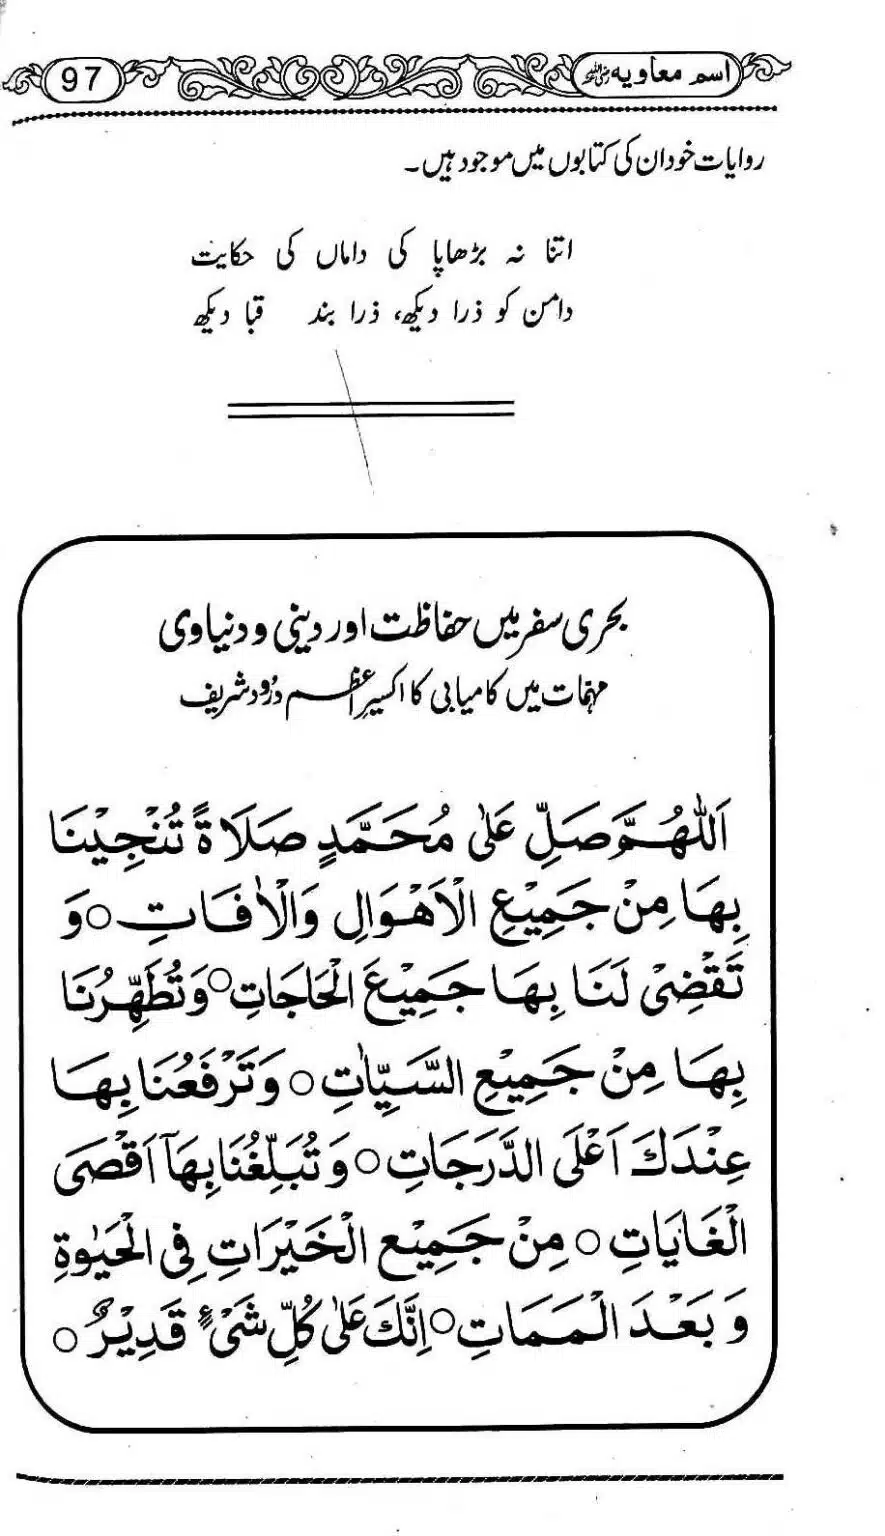 اسم معاویہ رضی اللہ عنہ 97
روایات خود ان کی کتابوں میں موجود ہیں۔
اتنا نہ بڑھاپا کی داماں کی حکایت
دامن کو ذرا دیکھ، ذرا بند قبا دیکھ
بحری سفر میں حفاظت اور دینی و دنیاوی
مہمات میں کامیابی کا اکسیرِ اعظم درُود شریف
اَللّٰهُمَّ صَلِّ عَلٰی مُحَمَّدٍ صَلَاةً تُنْجِيْنَا
بِهَا مِنْ جَمِيْعِ الْاَهْوَالِ وَالْاٰفَاتِ ○ وَ
تَقْضِىْ لَنَا بِهَا جَمِيْعَ الْحَاجَاتِ ○ وَتُطَهِّرُنَا
بِهَا مِنْ جَمِيْعِ السَّيِّاٰتِ ○ وَتَرْفَعُنَا بِهَا
عِنْدَكَ اَعْلَى الدَّرَجَاتِ ○ وَتُبَلِّغُنَا بِهَآ اَقْصَى
الْغَايَاتِ ○ مِنْ جَمِيْعِ الْخَيْرَاتِ فِى الْحَيٰوةِ
وَبَعْدَ الْمَمَاتِ ○ اِنَّكَ عَلٰى كُلِّ شَىْءٍ قَدِيْرٌ ○